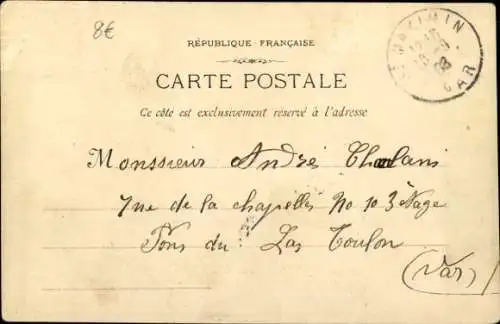 8€
RÉPUBLIQUE FRANÇAISE
CARTE POSTALE
Ce côté est exclusivement réservé à l'adresse
ST MAXIMIN
VAR
Monssieur André
rue de la chapelles No 10 3 Etage
Pons du Las Toulon
(Var)